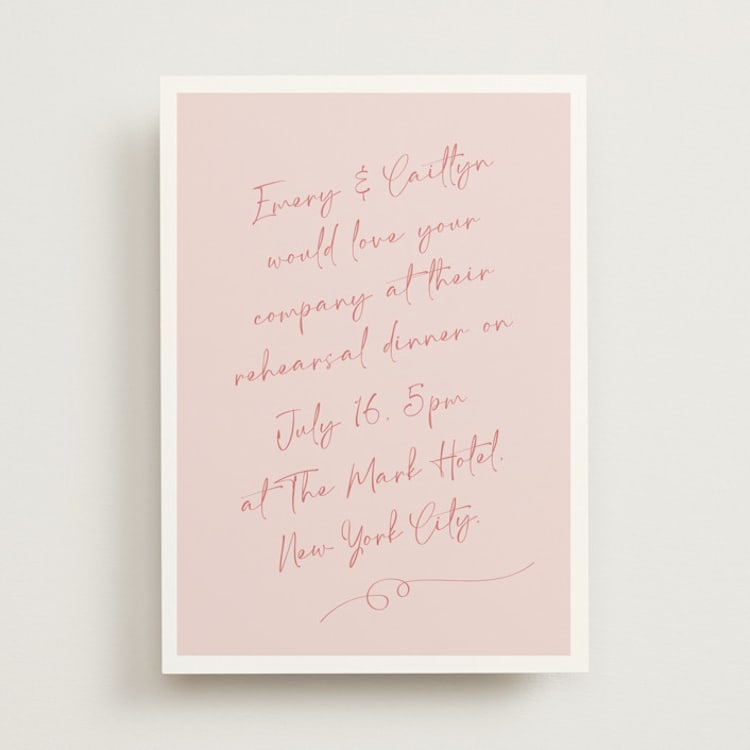 Emery & Caitlyn
would love your
company at their
rehearsal dinner on
July 16, 5pm
at The Mark Hotel,
New York City.